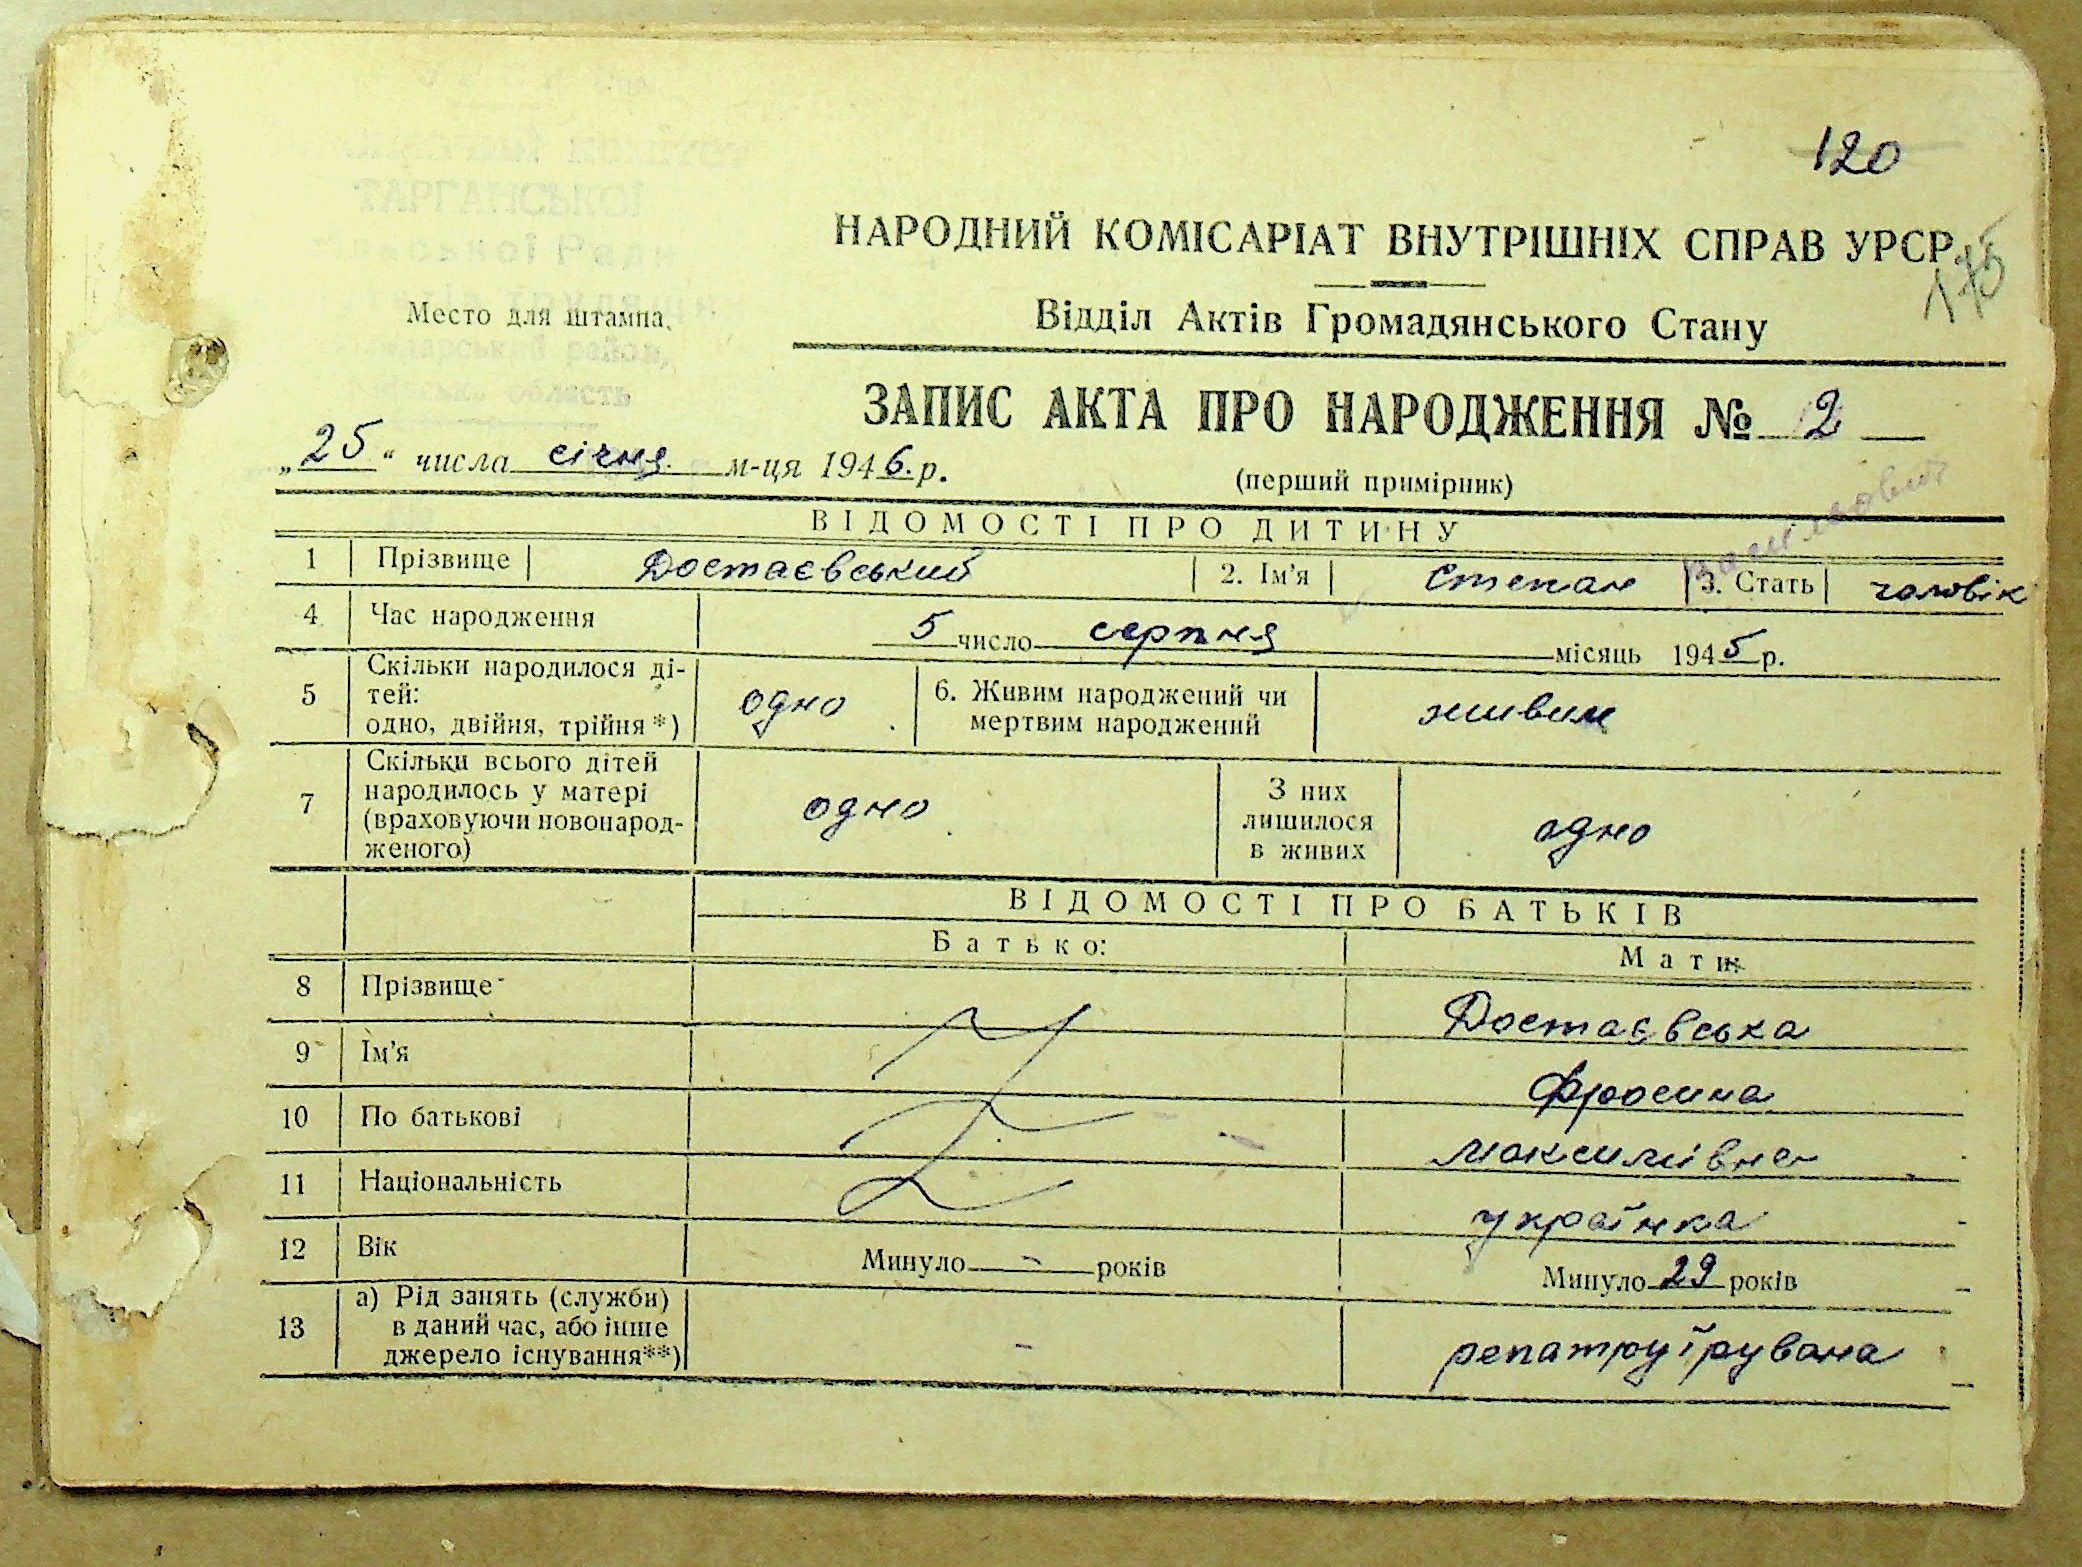 120
ТАРГАНСЬКОЇ
НАРОДНИЙ КОМІСАРІАТ ВНУТРІШНІХ СПРАВ УРСР
175
Место для штампа.
Відділ Актів Громадянського Стану
район,
область
ЗАПИС АКТА ПРО НАРОДЖЕННЯ № 2
„25“ числа січня м-ця 1946. р.
(перший примірник)
ВІДОМОСТІ ПРО ДИТИНУ
1 Прізвище Достаєвський 2. Ім'я Степан 3. Стать чоловік
4 Час народження 5 число серпня місяць 1945 р.
5 Скільки народилося ді-
тей:
одно, двійня, трійня *) одно 6. Живим народжений чи
мертвим народжений живим
7 Скільки всього дітей
народилось у матері
(враховуючи новонарод-
женого) одно З них
лишилося
в живих одно
ВІДОМОСТІ ПРО БАТЬКІВ
Батько: Мати:
8 Прізвище Достаєвська
9 Ім'я Фросина
10 По батькові Максимівна
11 Національність українка
12 Вік Минуло - років Минуло 29 років
13 а) Рід занять (служби)
в даний час, або інше
джерело існування**) - репатруїрувана